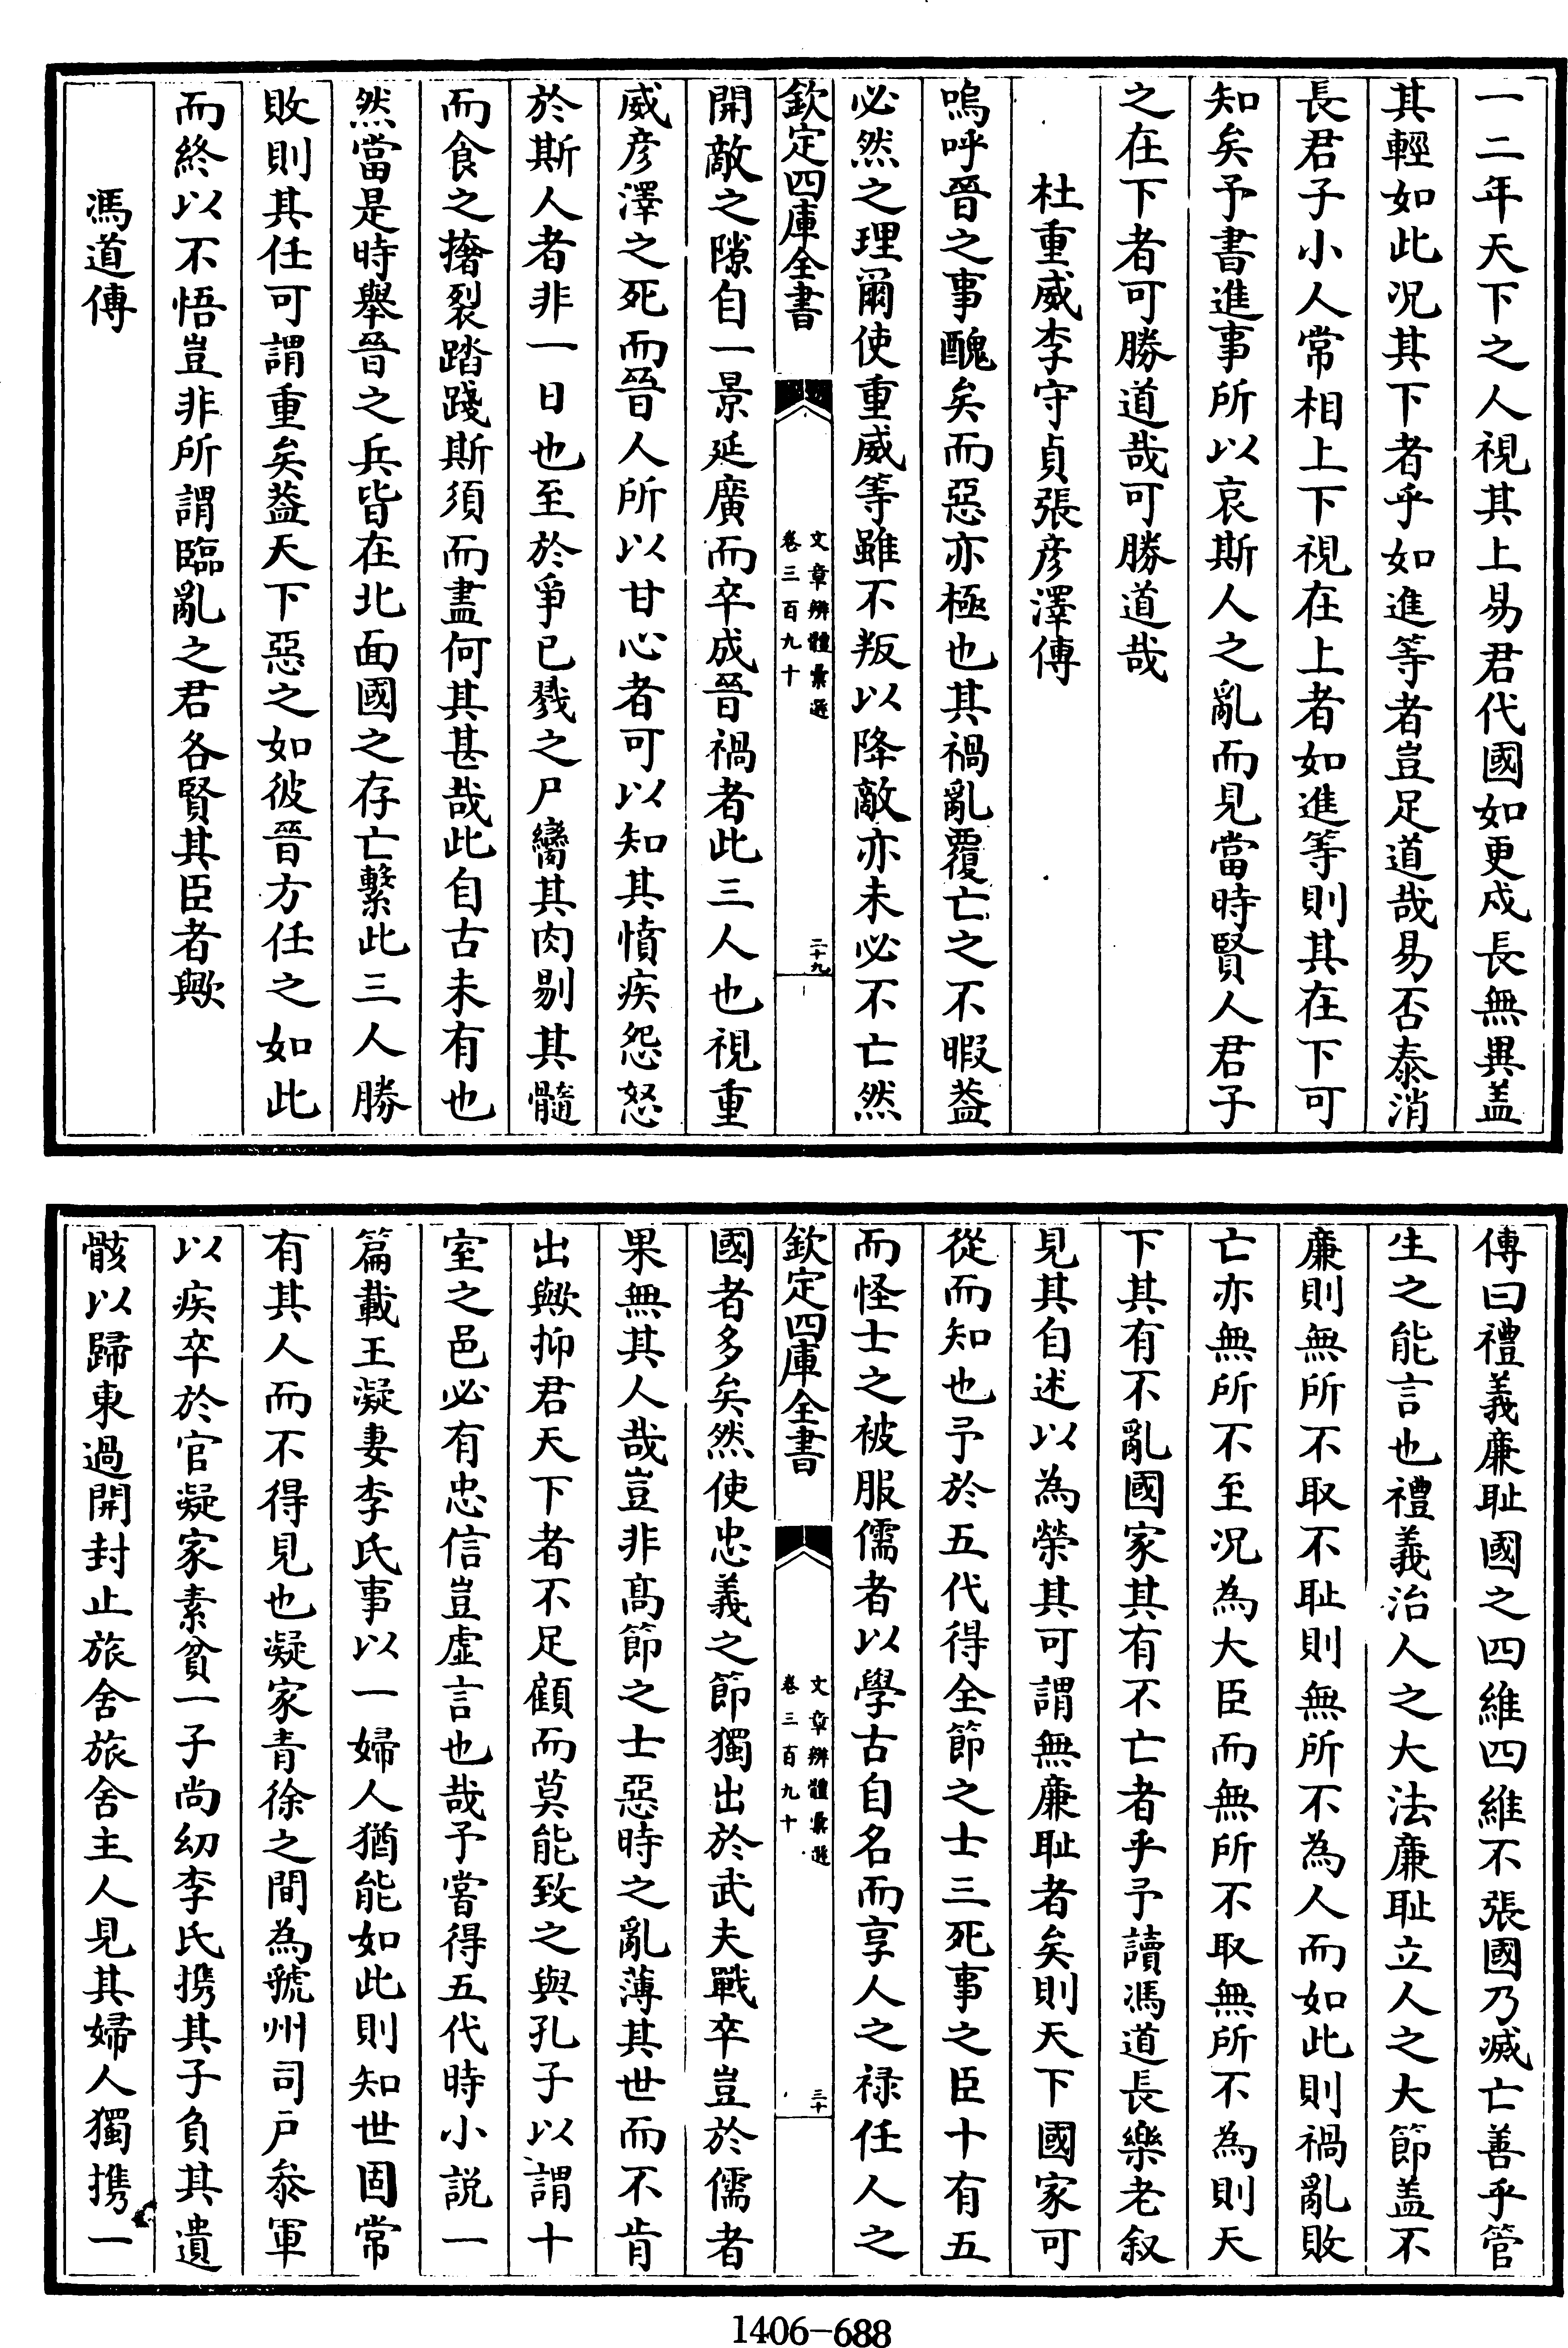 一二年天下之人視其上易君代國如更戍長無異盖
其輕如此況其下者乎如進等者豈足道哉易否泰消
長君子小人常相上下視在上者如進等則其在下可
知矣予書進事所以哀斯人之亂而見當時賢人君子
之在下者可勝道哉可勝道哉
杜重威李守貞張彥澤傳
嗚呼晉之事醜矣而惡亦極也其禍亂覆亡之不暇葢
必然之理爾使重威等雖不叛以降敵亦未必不亡然
欽定四庫全書
文章辨體彙選
卷三百九十
二十九
開敵之隙自一景延廣而卒成晉禍者此三人也視重
威彥澤之死而晉人所以甘心者可以知其憤疾怨怒
於斯人者非一日也至於爭已戮之尸臠其肉剔其髓
而食之撦裂踏踐斯須而盡何其甚哉此自古未有也
然當是時舉晉之兵皆在北面國之存亡繫此三人勝
敗則其任可謂重矣葢天下惡之如彼晉方任之如此
而終以不悟豈非所謂臨亂之君各賢其臣者歟
馮道傳
傳曰禮義廉恥國之四維四維不張國乃滅亡善乎管
生之能言也禮義治人之大法廉恥立人之大節盖不
廉則無所不取不恥則無所不為人而如此則禍亂敗
亡亦無所不至況為大臣而無所不取無所不為則天
下其有不亂國家其有不亡者乎予讀馮道長樂老叙
見其自述以為榮其可謂無廉恥者矣則天下國家可
從而知也予於五代得全節之士三死事之臣十有五
而怪士之被服儒者以學古自名而享人之禄任人之
欽定四庫全書
文章辨體彙選
卷三百九十
三十
國者多矣然使忠義之節獨出於武夫戰卒豈於儒者
果無其人哉豈非高節之士惡時之亂薄其世而不肯
出歟抑君天下者不足顧而莫能致之與孔子以謂十
室之邑必有忠信豈虛言也哉予嘗得五代時小説一
篇載王凝妻李氏事以一婦人猶能如此則知世固常
有其人而不得見也凝家青徐之間為虢州司戶叅軍
以疾卒於官凝家素貧一子尚幼李氏携其子負其遺
骸以歸東過開封止旅舍旅舍主人見其婦人獨携一
1406-688